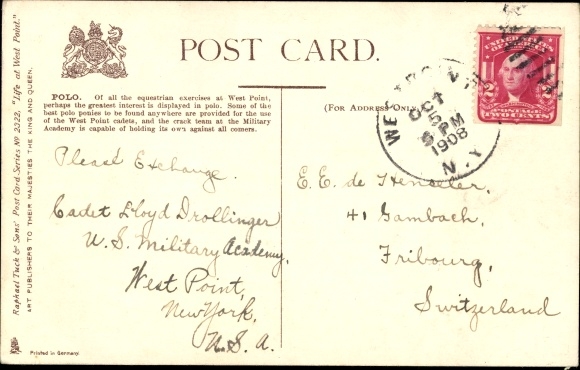 POST CARD.
POLO. Of all the equestrian exercises at West Point,
perhaps the greatest interest is displayed in polo. Some of the
best polo ponies to be found anywhere are provided for the use
of the West Point cadets, and the crack team at the Military
Academy is capable of holding its own against all comers.
Please Exchange.
Cadet Lloyd Drollinger
U.S. Military Academy,
West Point,
New York,
U.S.A.
(FOR ADDRESS ONLY)
WEST POINT
OCT
5
5 PM
1908
N.Y.
UNITED STATES
OF AMERICA
2 2
POSTAGE
TWO CENTS
E. E. de Henseler,
41 Gambach,
Fribourg,
Switzerland
Raphael Tuck & Sons' Post Card Series No 2322, "Life at West Point."
ART PUBLISHERS TO THEIR MAJESTIES THE KING AND QUEEN.
Printed in Germany